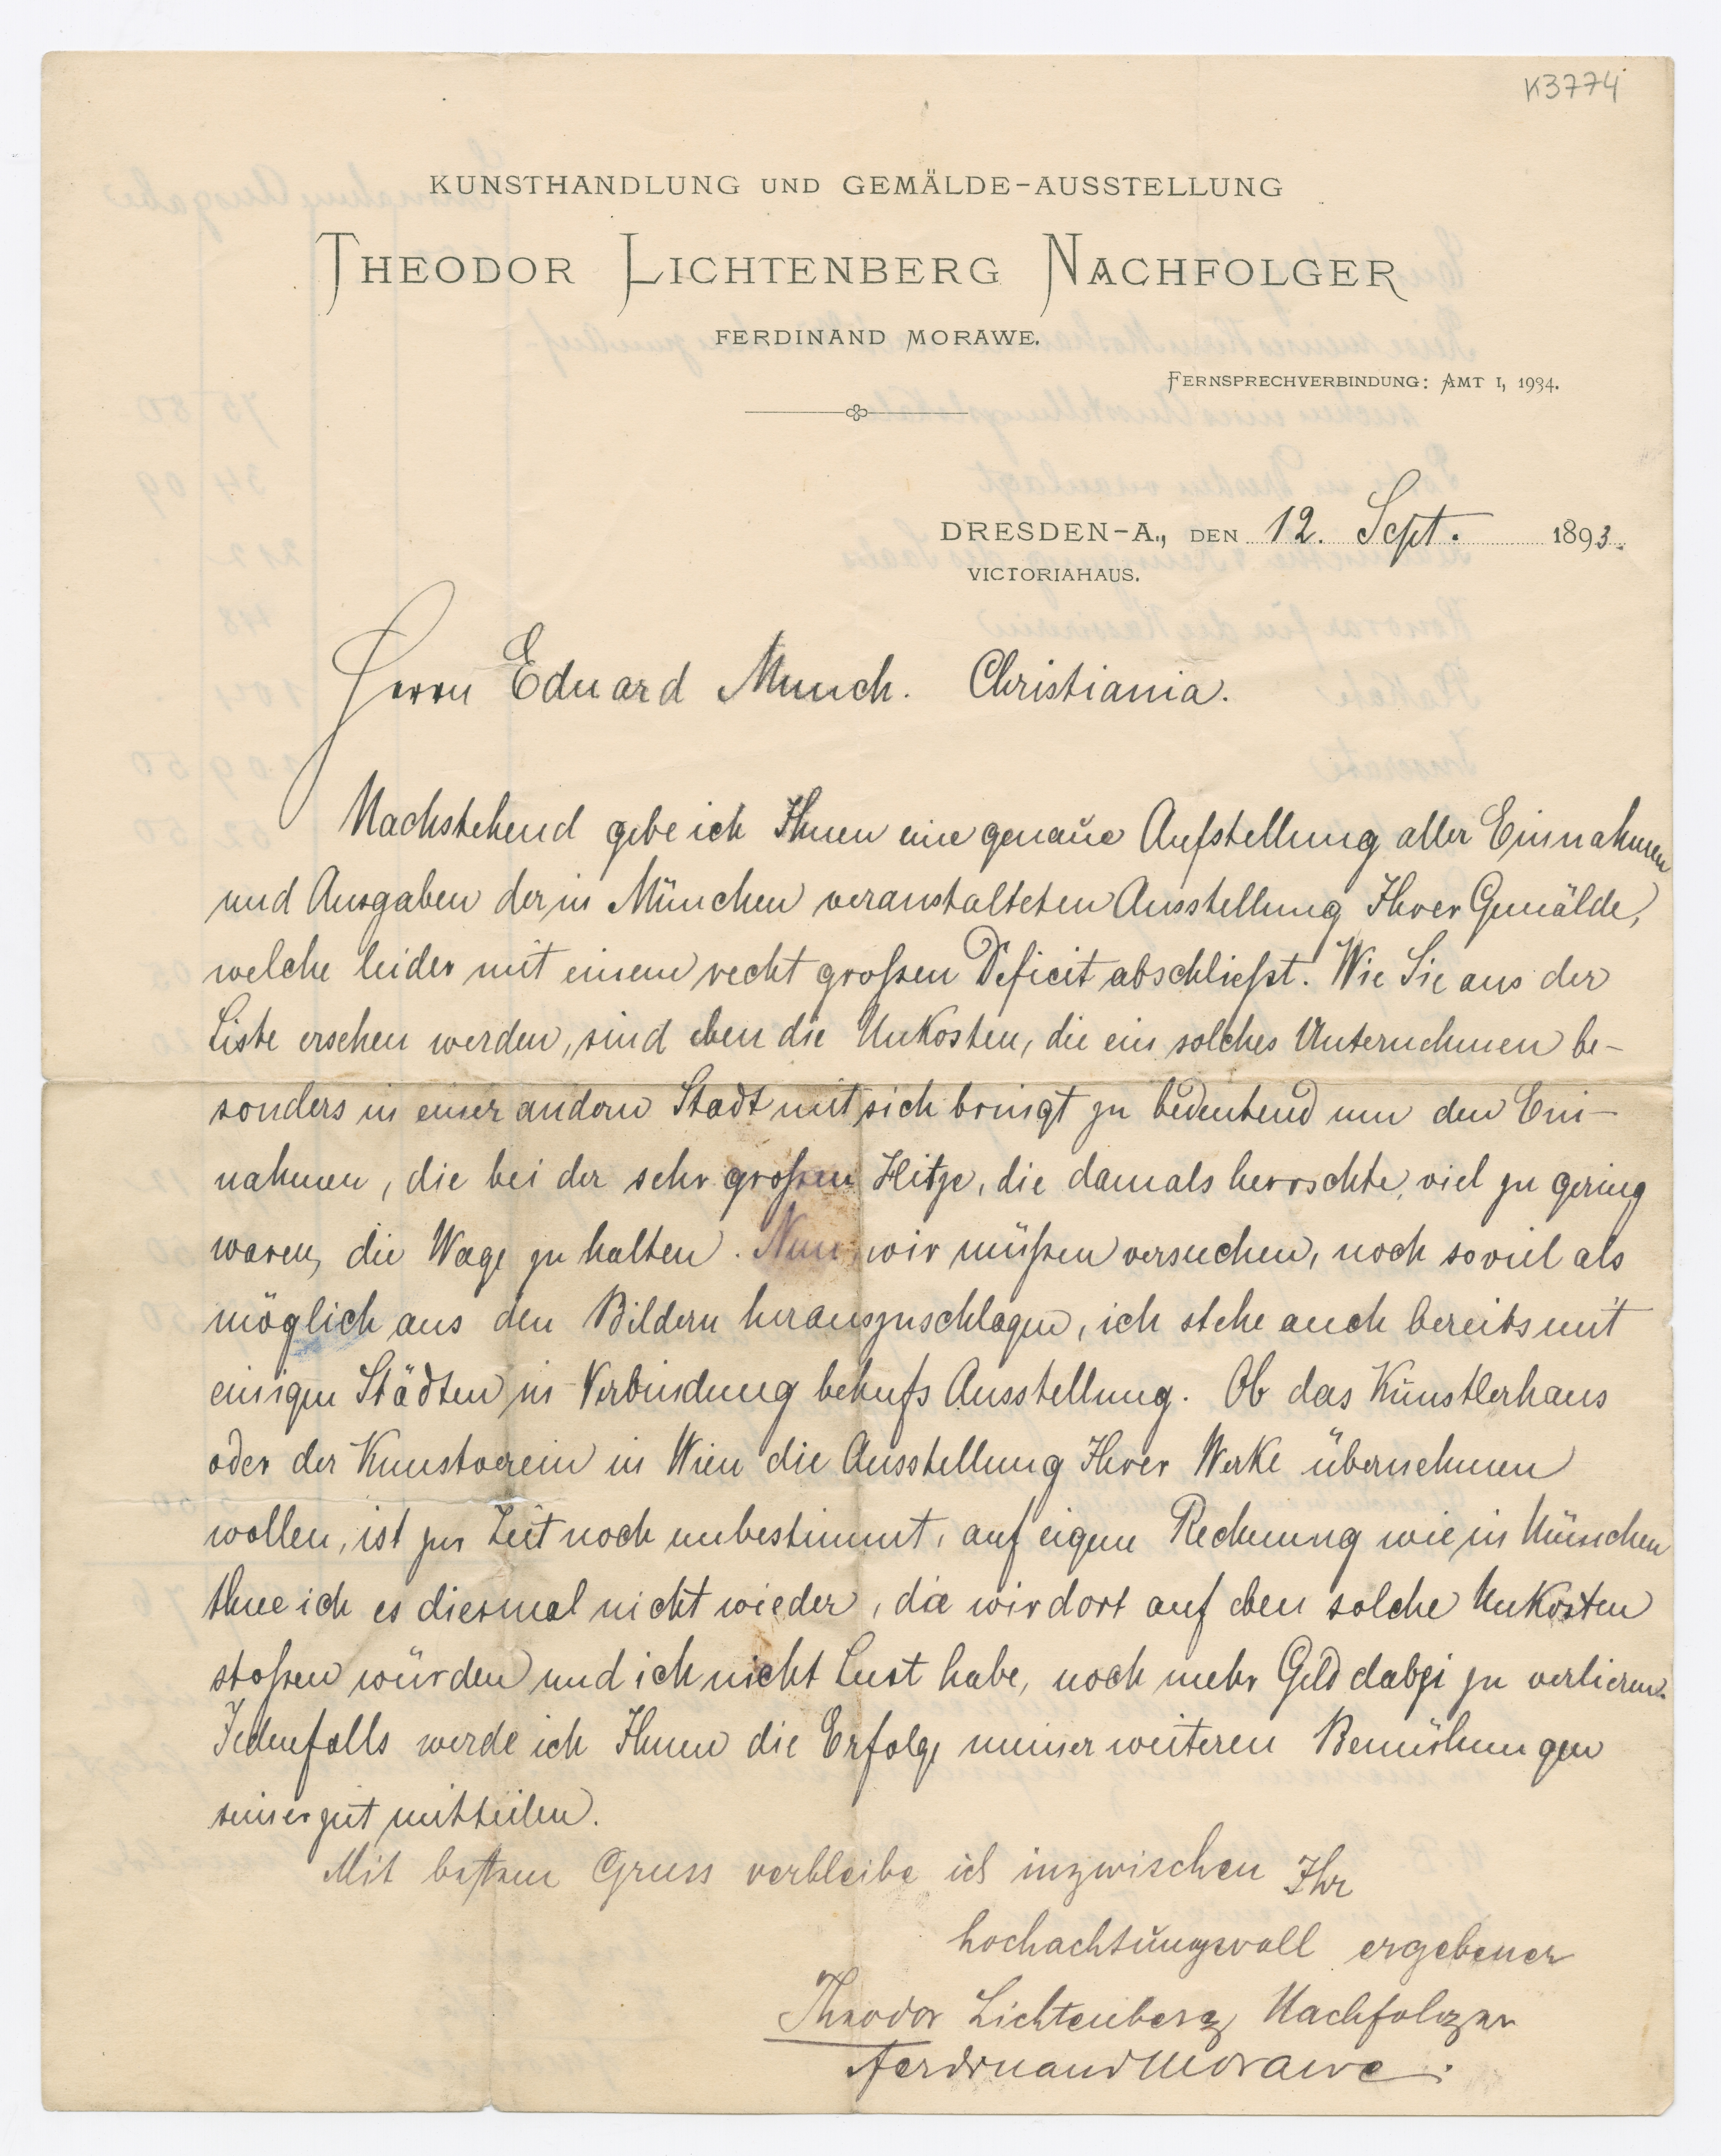 K3774
KUNSTHANDLUNG UND GEMÄLDE-AUSSTELLUNG
THEODOR LICHTENBERG NACHFOLGER
FERDINAND MORAWE.
FERNSPRECHVERBINDUNG: AMT I, 1934.
DRESDEN-A., DEN 12. Sept. 1893.
VICTORIAHAUS.
Herrn Eduard Munch. Christiania.
Nachstehend gebe ich Ihnen eine genaue Aufstellung aller Einnahmen
und Ausgaben der in München veranstalteten Ausstellung Ihrer Gemälde,
welche leider mit einem recht großen Deficit abschließt. Wie Sie aus der
Liste ersehen werden, sind eben die Unkosten, die ein solches Unternehmen be-
sonders in einer andern Stadt mit sich bringt zu bedeutend um den Ein-
nahmen, die bei der sehr großen Hitze, die damals herrschte, viel zu gering
waren, die Wage zu halten. Nun wir müßen versuchen, noch soviel als
möglich aus den Bildern herauszuschlagen, ich stehe auch bereits mit
einigen Städten in Verbindung behufs Ausstellung. Ob das Künstlerhaus
oder der Kunstverein in Wien die Ausstellung Ihrer Werke übernehmen
wollen, ist zur Zeit noch unbestimmt, auf eigene Rechnung wie in München
thue ich es diesmal nicht wieder, da wir dort auf eben solche Unkosten
stoßen würden und ich nicht Lust habe, noch mehr Geld dabei zu verlieren.
Jedenfalls werde ich Ihnen die Erfolge meiner weiteren Bemühungen
seiner zeit mitteilen.
Mit bestem Gruss verbleibe ich inzwischen Ihr
hochachtungsvoll ergebener
Theodor Lichtenberg Nachfolger
Ferdinand Morawe.